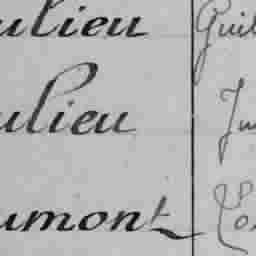 ulieu Guil
ulieu
umont